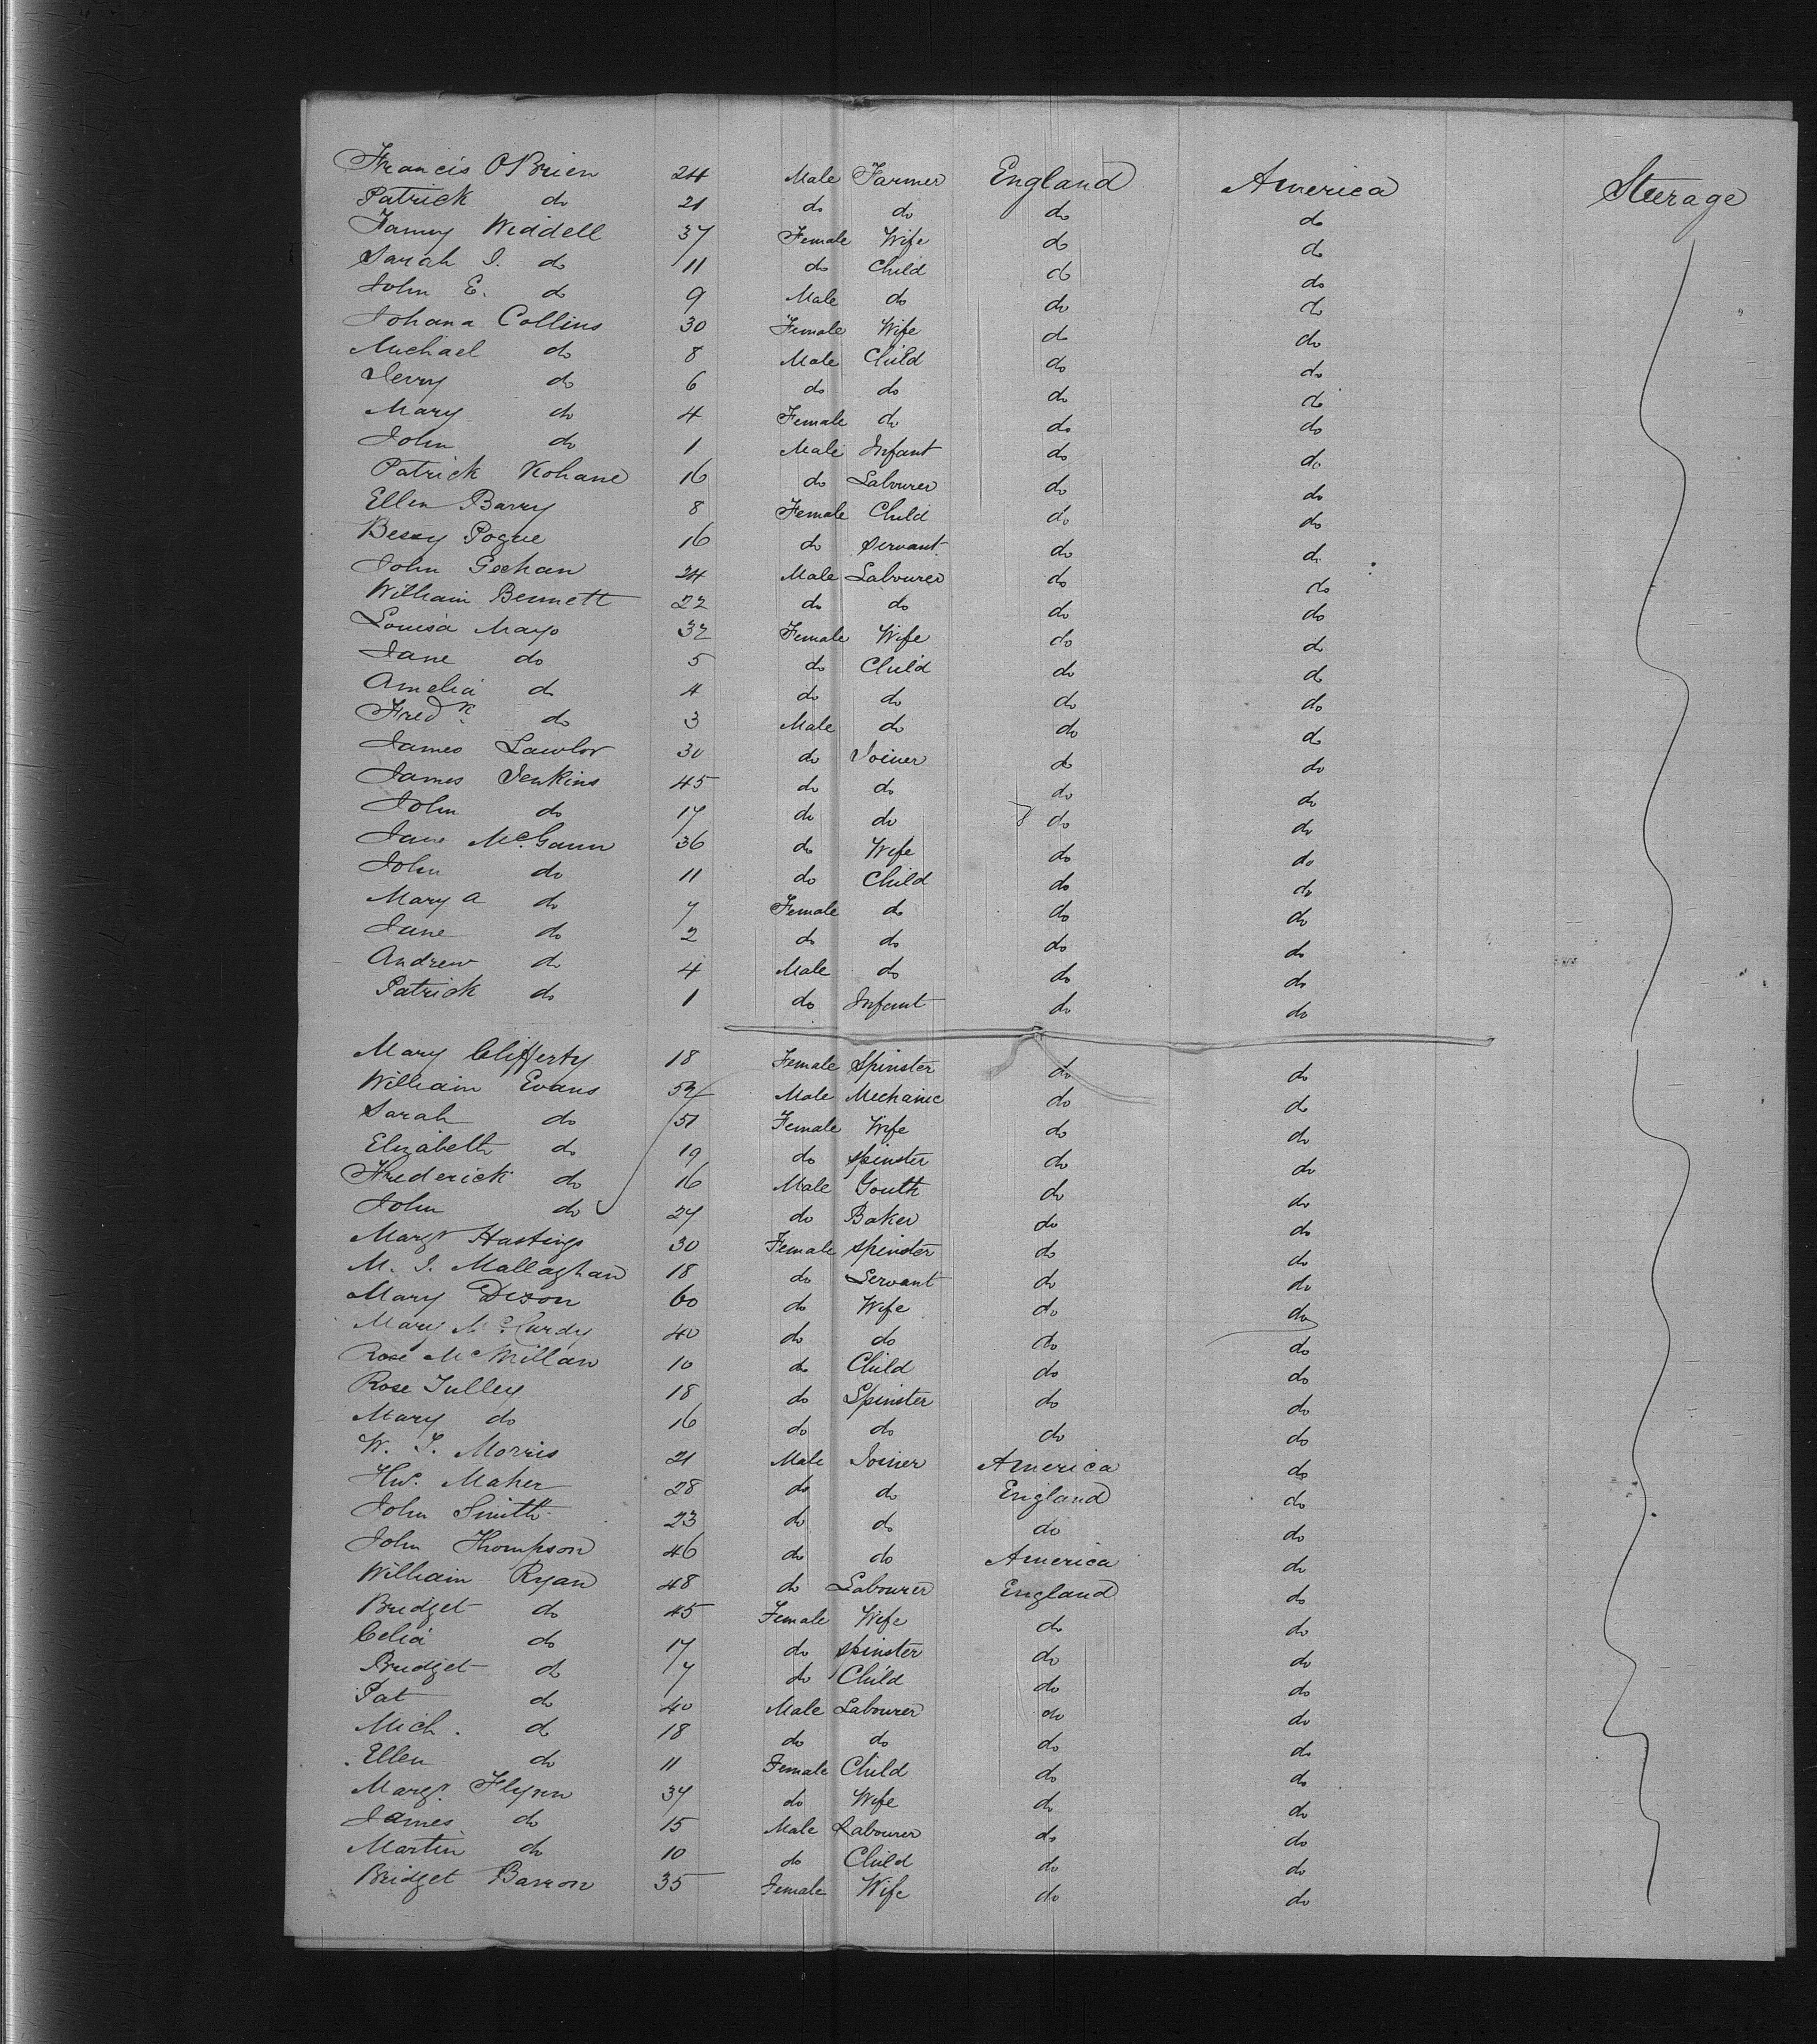 Francis O'Brien 24 Male Farmer England America Steerage
Patrick do 21 do do do do
Fanny Weddell 37 Female Wife do do
Sarah J. do 11 do Child do do
John E. do 9 Male do do do
Johana Collins 30 Female Wife do do
Michael do 8 Male Child do do
Jerry do 6 do do do do
Mary do 4 Female do do do
John do 1 Male Infant do do
Patrick Kohane 16 do Labourer do do
Ellen Barry 8 Female Child do do
Bessy Pogue 16 do Servant do do
John Geehan 24 Male Labourer do do
William Bennett 22 do do do do
Louisa Mayo 32 Female Wife do do
Jane do 5 do Child do do
Amelia do 4 do do do do
Fredk. do 3 Male do do do
James Lawlor 30 do Joiner do do
James Jenkins 45 do do do do
John do 17 do do do do
Jane McGann 36 do Wife do do
John do 11 do Child do do
Mary A do 7 Female do do do
Jane do 2 do do do do
Andrew do 4 Male do do do
Patrick do 1 do Infant do do
Mary Clifferty 18 Female Spinster do do
William Evans Male Mechanic do do
Sarah do 51 Female Wife do do
Elizabeth do 19 do Spinster do do
Frederick do 16 Male Youth do do
John do 27 do Baker do do
Margt Hastings 30 Female Spinster do do
M. J. Mallaghan 18 do Servant do do
Mary Dixon 60 do Wife do do
Mary McCurdy 40 do do do do
Rose McMillan 10 do Child do do
Rose Tulley 18 do Spinster do do
Mary do 16 do do do do
W. J. Morris 21 Male Joiner America do
Maher 28 do do England do
John Smith 23 do do do do
John Thompson 46 do do America do
William Ryan 48 do Labourer England do
Bridget do 45 Female Wife do do
Celia do 17 do Spinster do do
Bridget do 7 do Child do do
Pat do 40 Male Labourer do do
Mich. do 18 do do do do
Ellen do 11 Female Child do do
Margt. Flynn 37 do Wife do do
James do 15 Male Labourer do do
Martin do 10 do Child do do
Bridget Barron 35 Female Wife do do